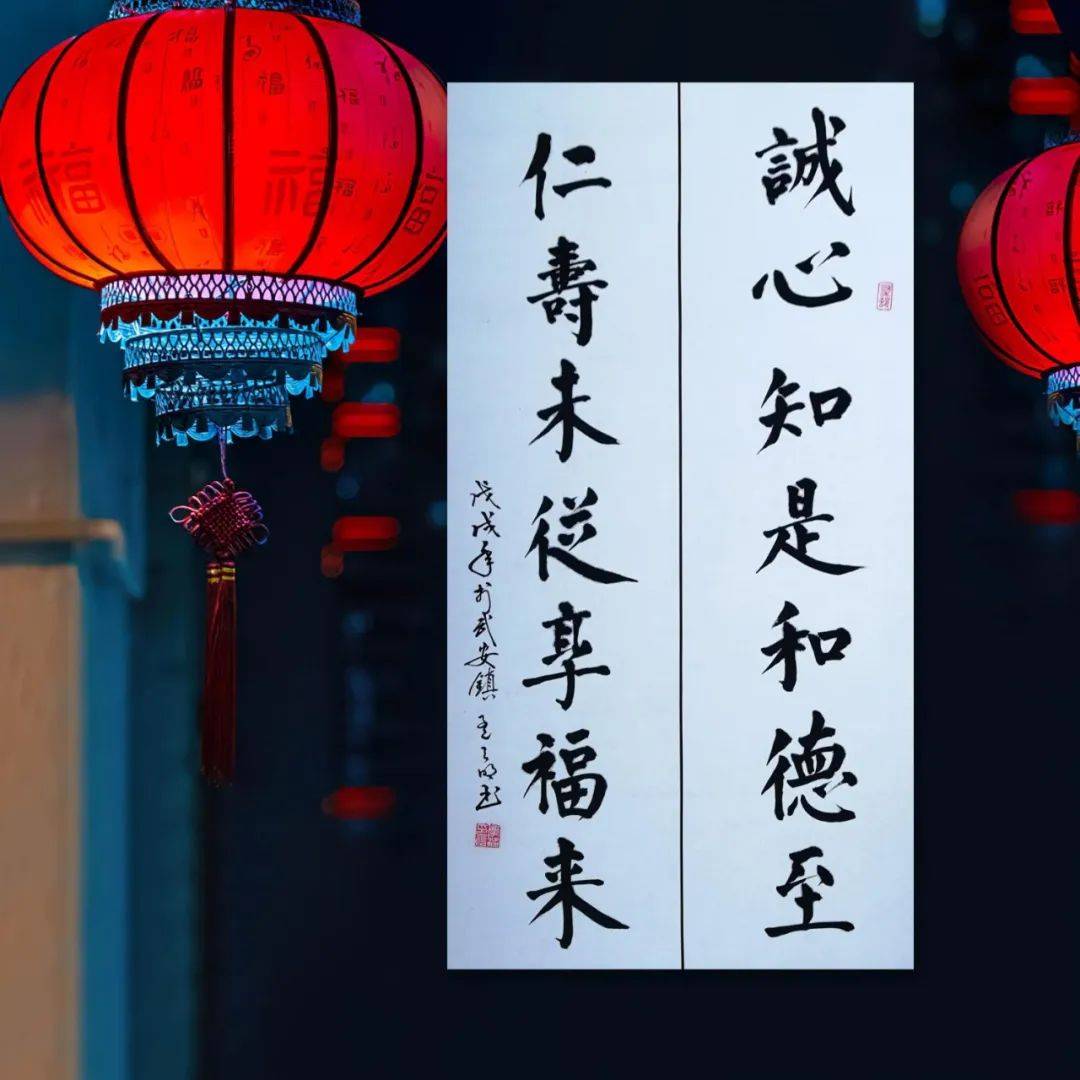 誠心知是和德至
仁壽未從享福来
戊戌年於武安鎮
福
福